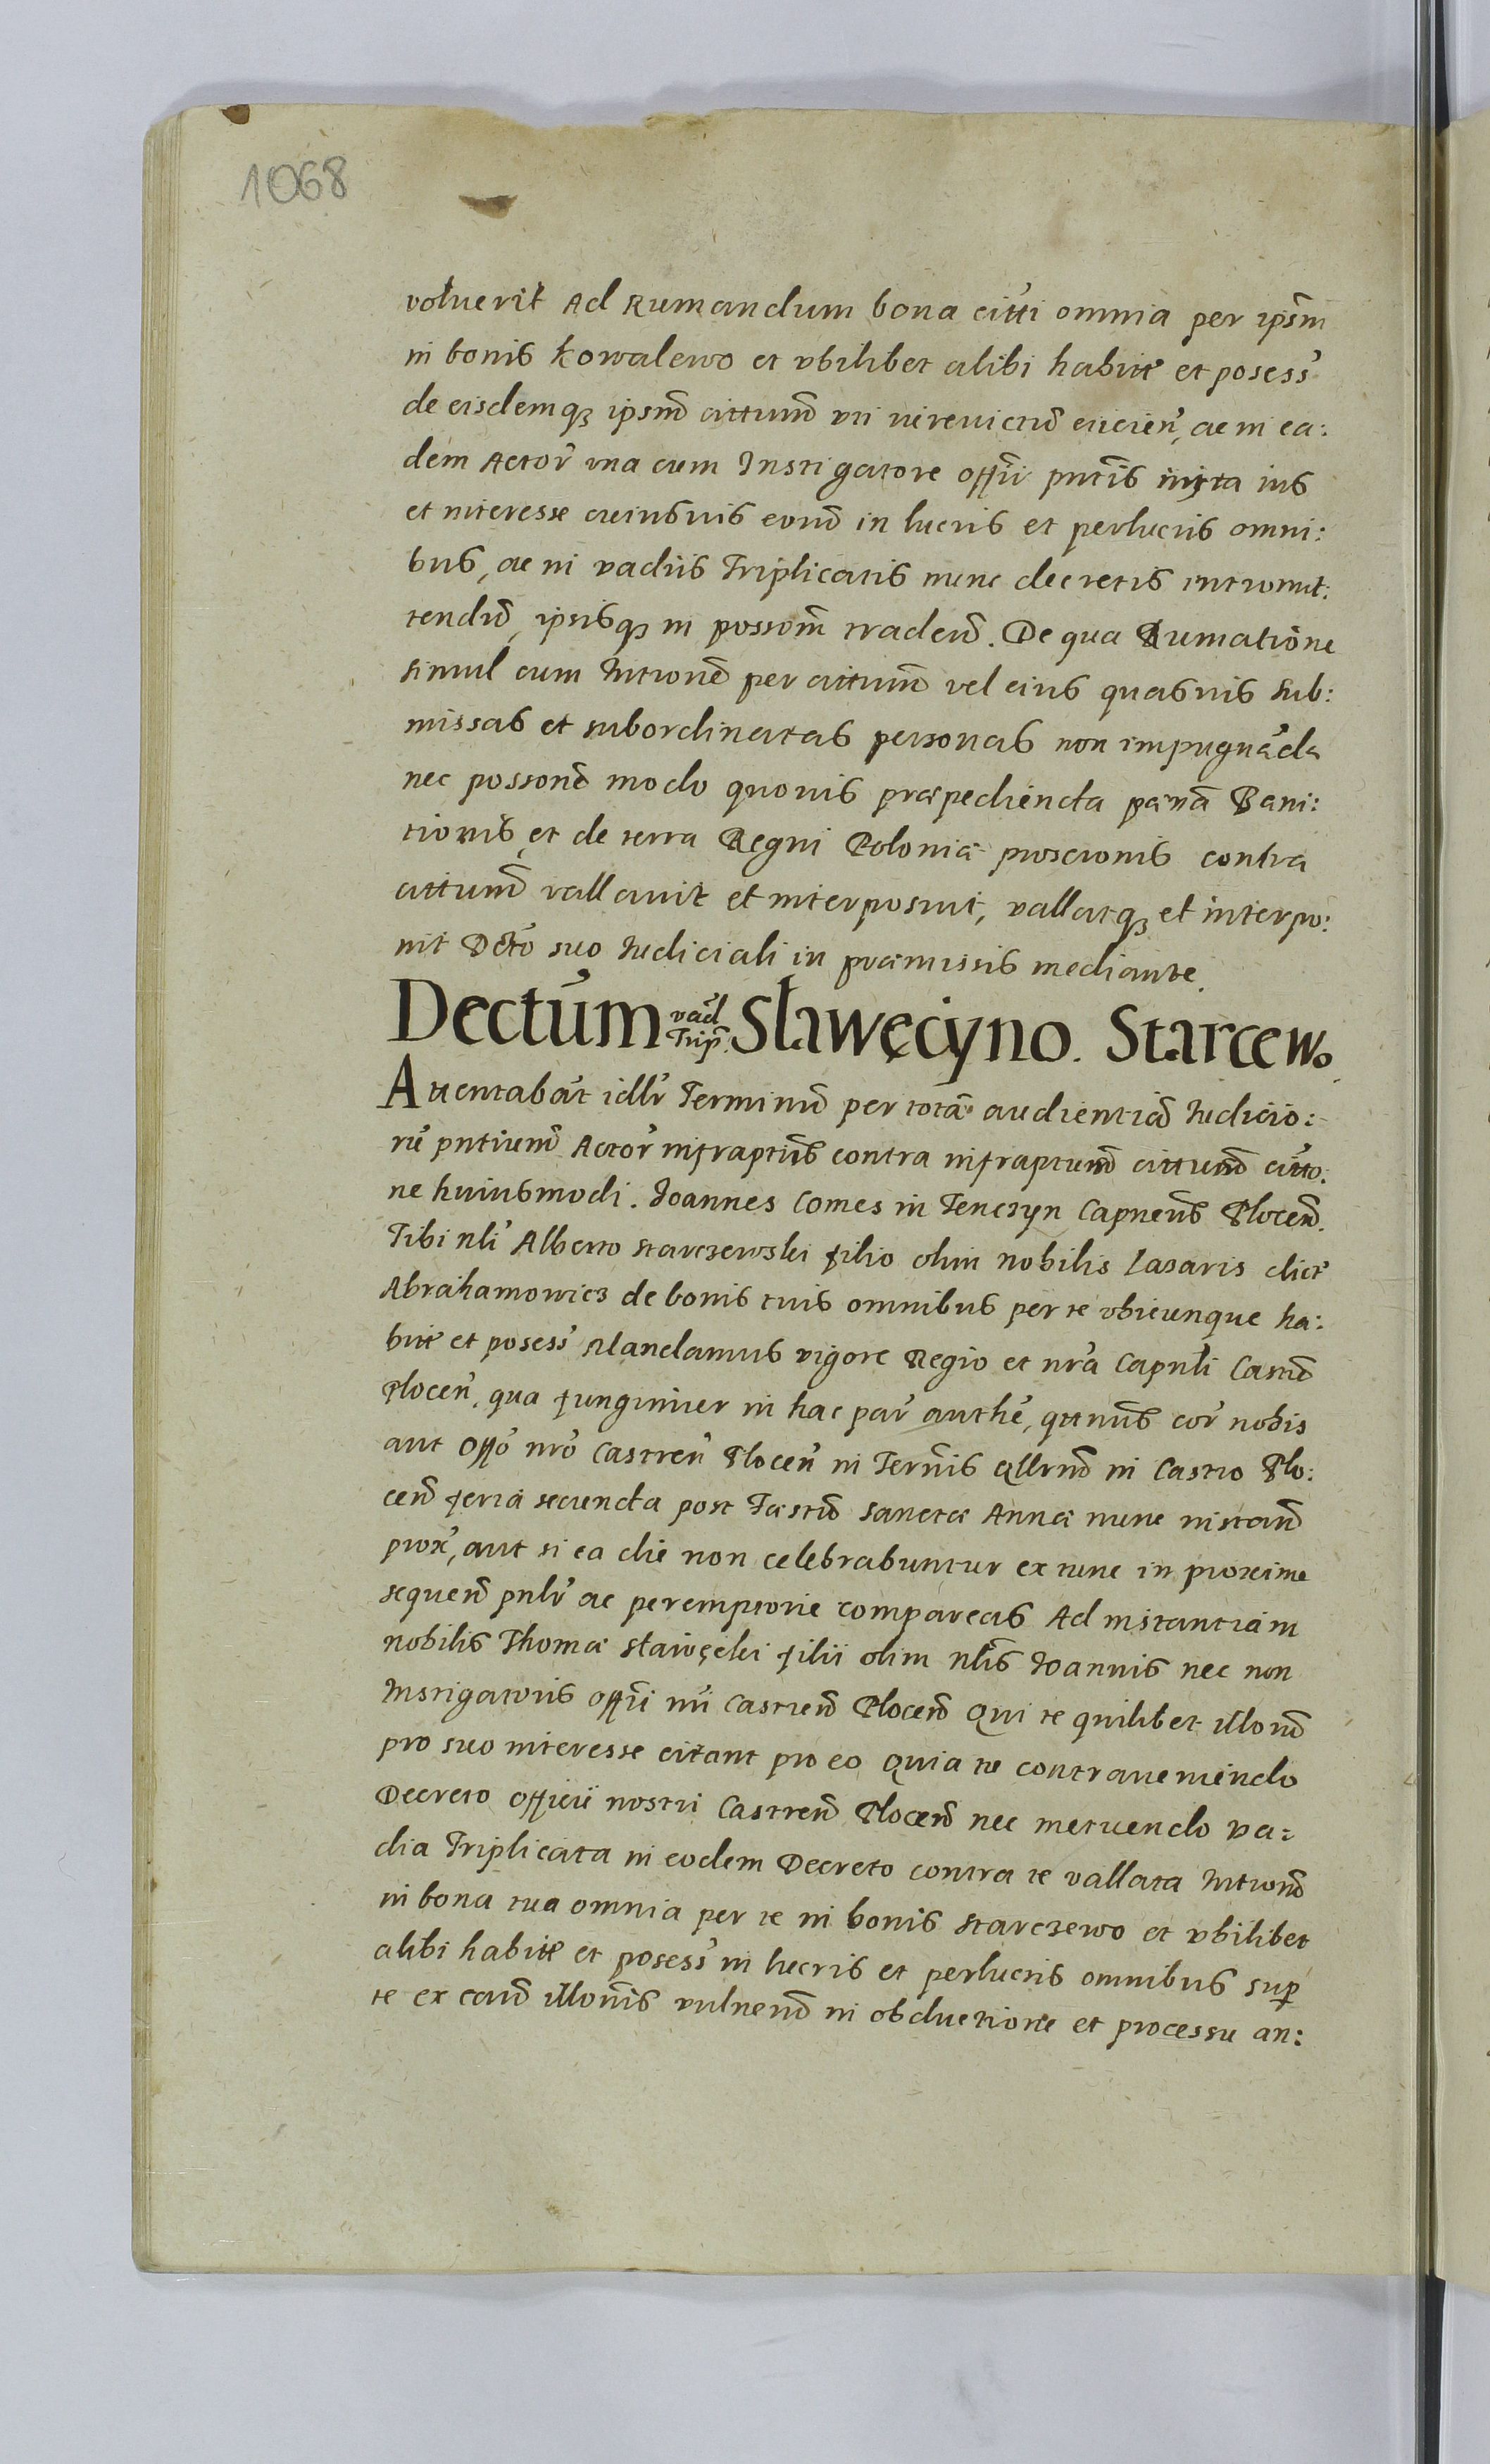 1068
voluerit Ad Rumandum bona citti omnia per ipsm
in bonis Kowalewo et vbilibet alibi habitt et posess
de eisdemq3 ipsm cittum vti iureuictu eiicien, ac in ea:
dem Actor vna cum Instigatore offii pntis iuxta ius
et interesse cuiusuis eoru in lucris et perlucris omni:
bus, ac in vadiis Triplicatis nunc decretis intromit:
tendu, ipsisq3 in possom tradend. De qua Rumatione
simul cum Intione per cittum vel eius quasuis sub:
missas et subordinatas personas non impugnada
nec possone modo quouis præpedienda pæna Bani:
tionis et de terra Regni Poloniæ proscionis contra
cittum vallauit et interposuit, vallatq3 et interpo:
nit Dcto suo Iudiciali in præmissis mediante.
Dectum vad Trip. Sławęcyno. Starcewo.
Attentabat idlr Terminu per tota audientia Iudicio:
ru pntium Actor infraptus contra infraptum cittum citto:
ne huiusmodi. Ioannes Comes in Tenczyn Capneus Plocen.
Tibi nli Alberto starczewski filio olim nobilis Lasaris dict
Abrahamowicz de bonis tuis omnibus per te vbicunque ha:
bitt et posess Mandamus vigore Regio et nra Capnli Castr
Plocen, qua fungimur in hac par authe, qtnus cor nobis
aut Offo nro Castren Plocen in Termis Qllrnd in Castro Plo:
cen feria secunda post Festu sanctæ Annæ nunc instan
prox, aut si ea die non celebrabuntur ex tunc in proxime
sequen pnlr ac peremptorie compareas Ad instantiam
nobilis Thomæ sławęcki filii olim nlis Ioannis nec non
Instigatoris offii nri Castren Plocen Qui te quilibet illoru
pro suo interesse citant pro eo Quia tu contraueniendo
Decreto officii nostri Castren Plocen nec metuendo va:
dia Triplicata in eodem Decreto contra te vallata Intione
in bona tua omnia per te in bonis starczewo et vbilibet
alibi habitt et posess in lucris et perlucris omnibus sup
te ex caus illonis vulneru in obductione et processu an: